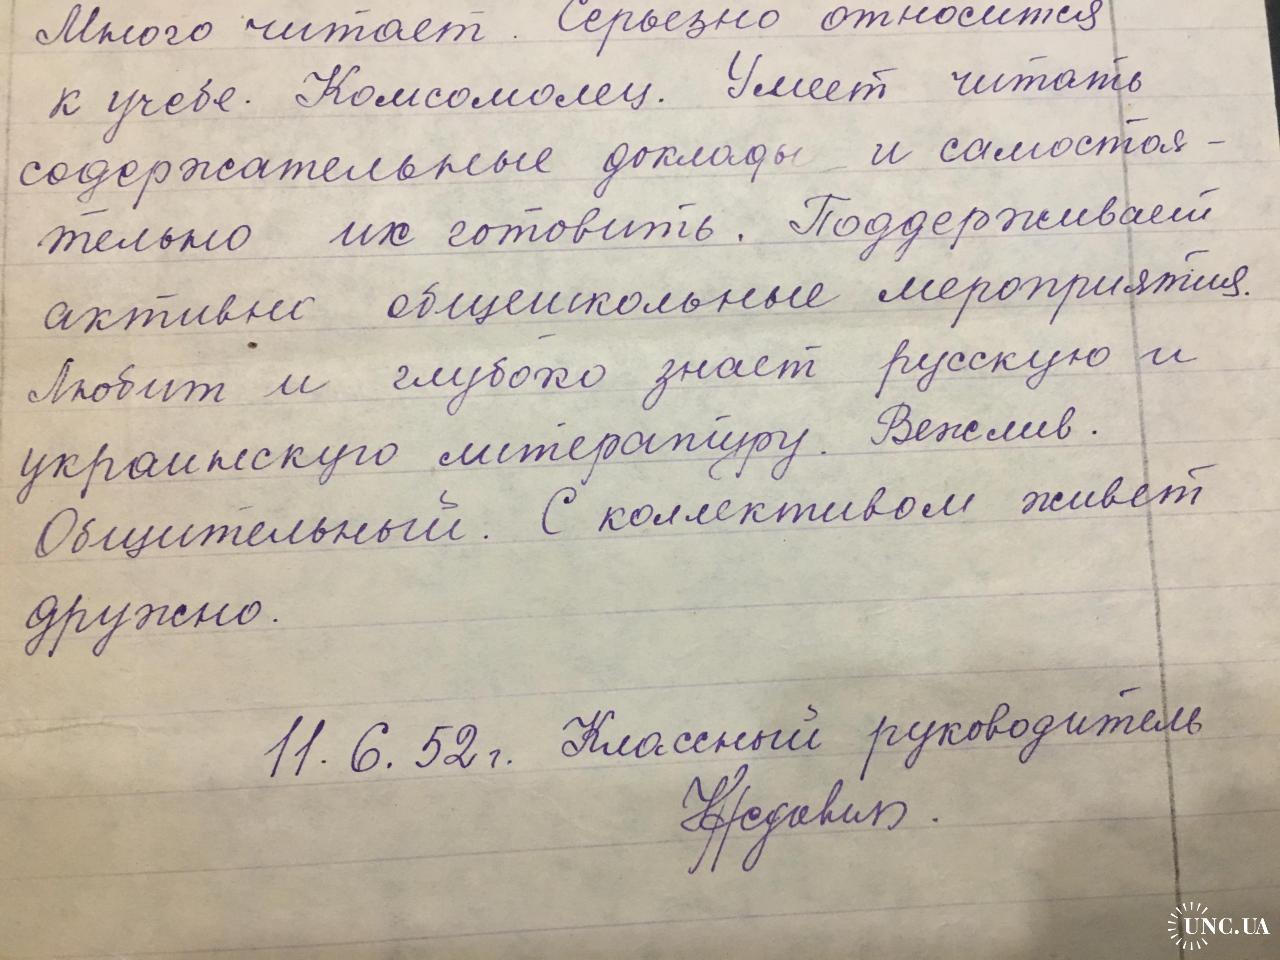 Много читает. Серьезно относится
к учебе. Комсомолец. Умеет читать
содержательные доклады и самостоя-
тельно их готовить. Поддерживает
активно общешкольные мероприятия.
Любит и глубоко знает русскую и
украинскую литературу. Вежлив.
Общительный. С коллективом живет
дружно.
11.6.52г. Классный руководитель
UNC.UA